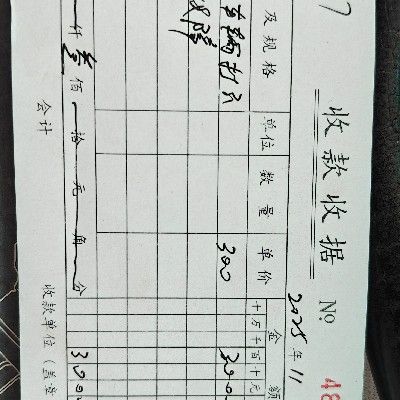 收款收据 № 48
2025年11
及规格 单位 数量 单价 金额
十万千百十元
车辆打 300 300
仟叁佰一拾一元一角一分 300
会计 收款单位(盖章